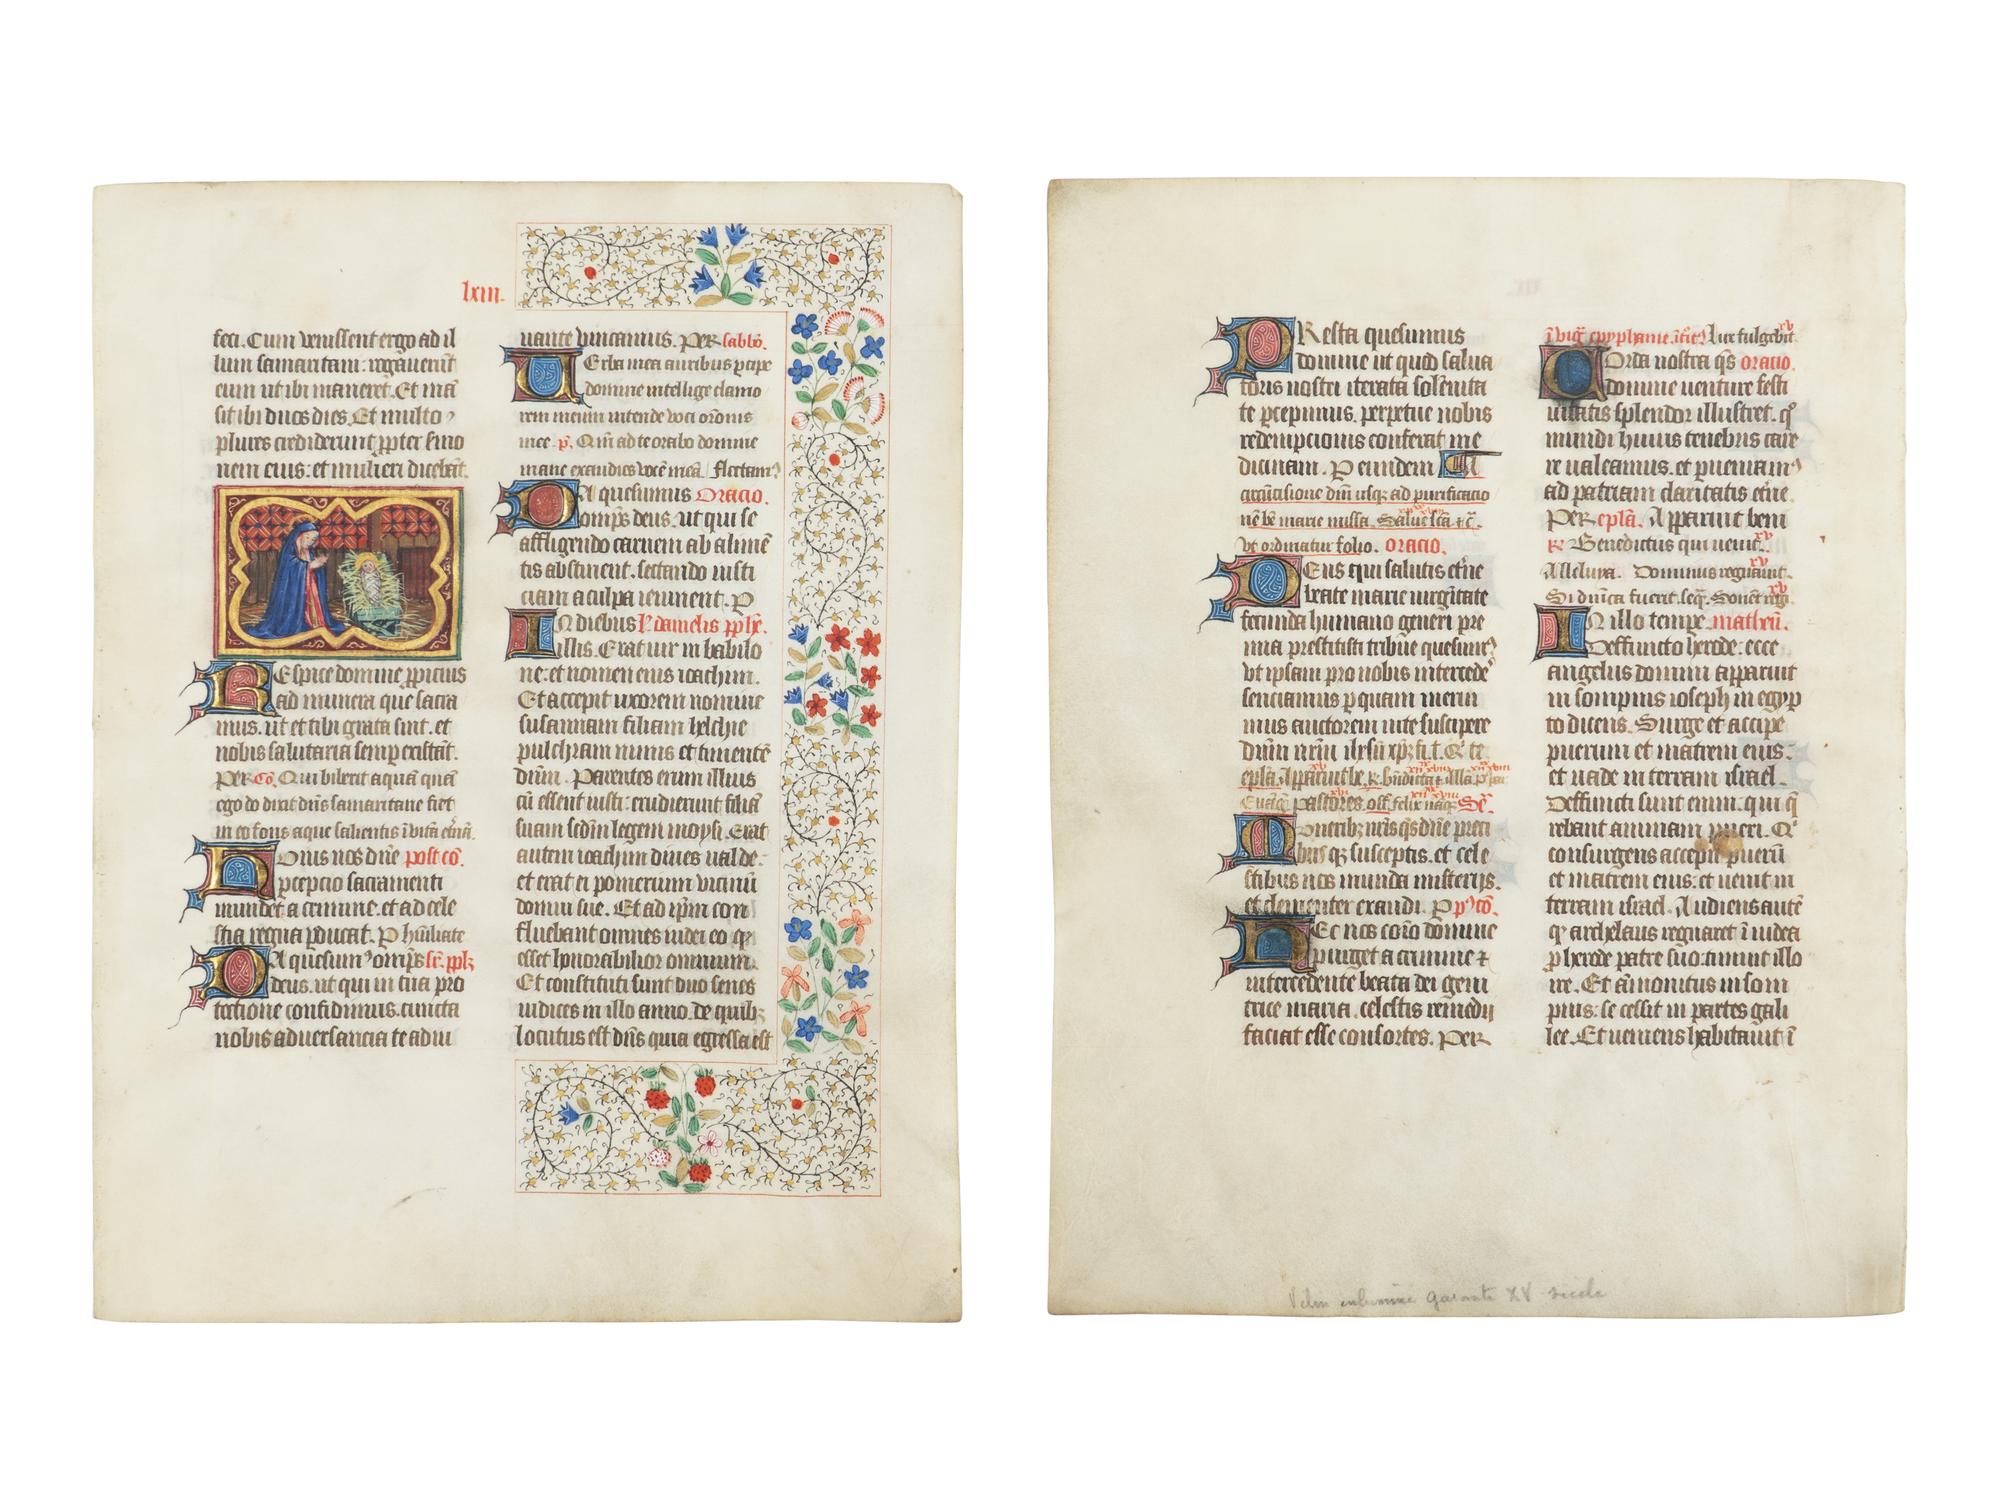 lxiii.
feci. Cum venissent ergo ad il
lum samaritani: rogaverūt
eum ut ibi maneret. Et mā
sit ibi duos dies. Et multo
plures crediderunt ꝓpter smo
nem eius: et mulieri dicebāt.
Respice domine ꝓpicius
ad munera que sacra
mus. ut et tibi grata sint. et
nobis salutaria semꝑ existāt.
Per Co. Qui biberit aquā quā
ego do dixit dn̄s samaritane fiet
in eo fons aque salientis ī vitā et̄nā.
Huius nos dn̄e post cō.
ꝑcepcio sacramenti
mundet a crimine. et ad cele
stia regna ꝑducat. P hūiliate
Da quesum' om̄ps sr̄. pp̄lm
deus. ut qui in tua pro
tectione confidimus. cuncta
nobis adversancia te adiu
uante vincamus. Per sabbō.
Verba mea auribus ꝑcipe
domine intellige clamo
rem meum intende voci orōnis
mee. p̄. Qm̄ ad te orabo domine
mane exaudies vocē meā. Flectam'
Da quesumus Oracio.
omp̄s deus. ut qui se
affligendo carnem ab alimē
tis abstinent. sectando iusti
ciam a culpa ieiunent. P
In diebus l' danielis ꝓphe.
illis. Erat vir in babilo
ne: et nomen eius ioachim.
Et accepit uxorem nomine
susannam filiam helchie
pulchram nimis et timentē
dm̄. Parentes enim illius
cū essent iusti: erudierunt filiā
suam sedm̄ legem moysi. Erat
autem ioachim dives valde.
et erat ei pomerium vicinū
domui sue. Et ad ip̄m con
fluebant omnes iudei eo q
esset honorabilior omnium.
Et constituti sunt duo senes
iudices in illo anno. de quibꝫ
locutus est dn̄s quia egressa est
Presta quesumus
domine ut quod salva
toris nostri iterata solēnita
te ꝑcepimus. perpetue nobis
redempcionis conferat me
dicinam. P eundem A
circūcisione dm̄ usqꝫ ad purificacio
nē bē marie missa. Salve scā ⁊ c̄.
vt ordinatur folio. oracio.
Deus qui salutis et̄ne
beate marie virgītate
fecunda humano generi pre
mia prestitisti tribue quesum'
vt ipsam pro nobis intercede'
senciamus ꝑ quam meru
imus auctorem vite suscipere
dnm̄ nr̄m ih̄m xp̄m fi. t. Q te
ep̄la. Apparuit be.
pastores. off. felix
Muneribꝫ nr̄is qs dn̄e preci
busqꝫ susceptis. et cele
stibus nos munda misterijs.
et clementer exaudi. P p' cō.
Hec nos cōio domine
purget a crimine ⁊
intercedente beata dei geni
trice maria. celestis remedij
faciat esse consortes. Per
ī vig' epyphanie. Lux fulgebit
Corda nostra qs oracio.
domine venture festi
vitatis splendor illustret. q
mundi huius tenebris care
re valeamus. et ꝑueniam'
ad patriam claritatis et̄ne.
Per ep̄la. Apparuit beni
R Benedictus qui venit.
Alleluya. Dominus regnavit.
Si dn̄ica fuerit. seq.
In illo tempe. matheū.
Deffuncto herode: ecce
angelus domini apparuit
in sompnis ioseph in egyp
to dicens. Surge et accipe
puerum et matrem eius:
et vade in terram israel.
Deffuncti sunt enim. qui q̄
rebant animam pueri. Q
consurgens accepit puerū
et matrem eius: et venit in
terram israel. Audiens autē
q archelaus regnaret ī iudea
ꝓ herode patre suo: timuit illo
ire. Et āmonitus in som
pnis: secessit in partes gali
lee. Et veniens habitavit ī
Velin enluminé Garanti XV siecle